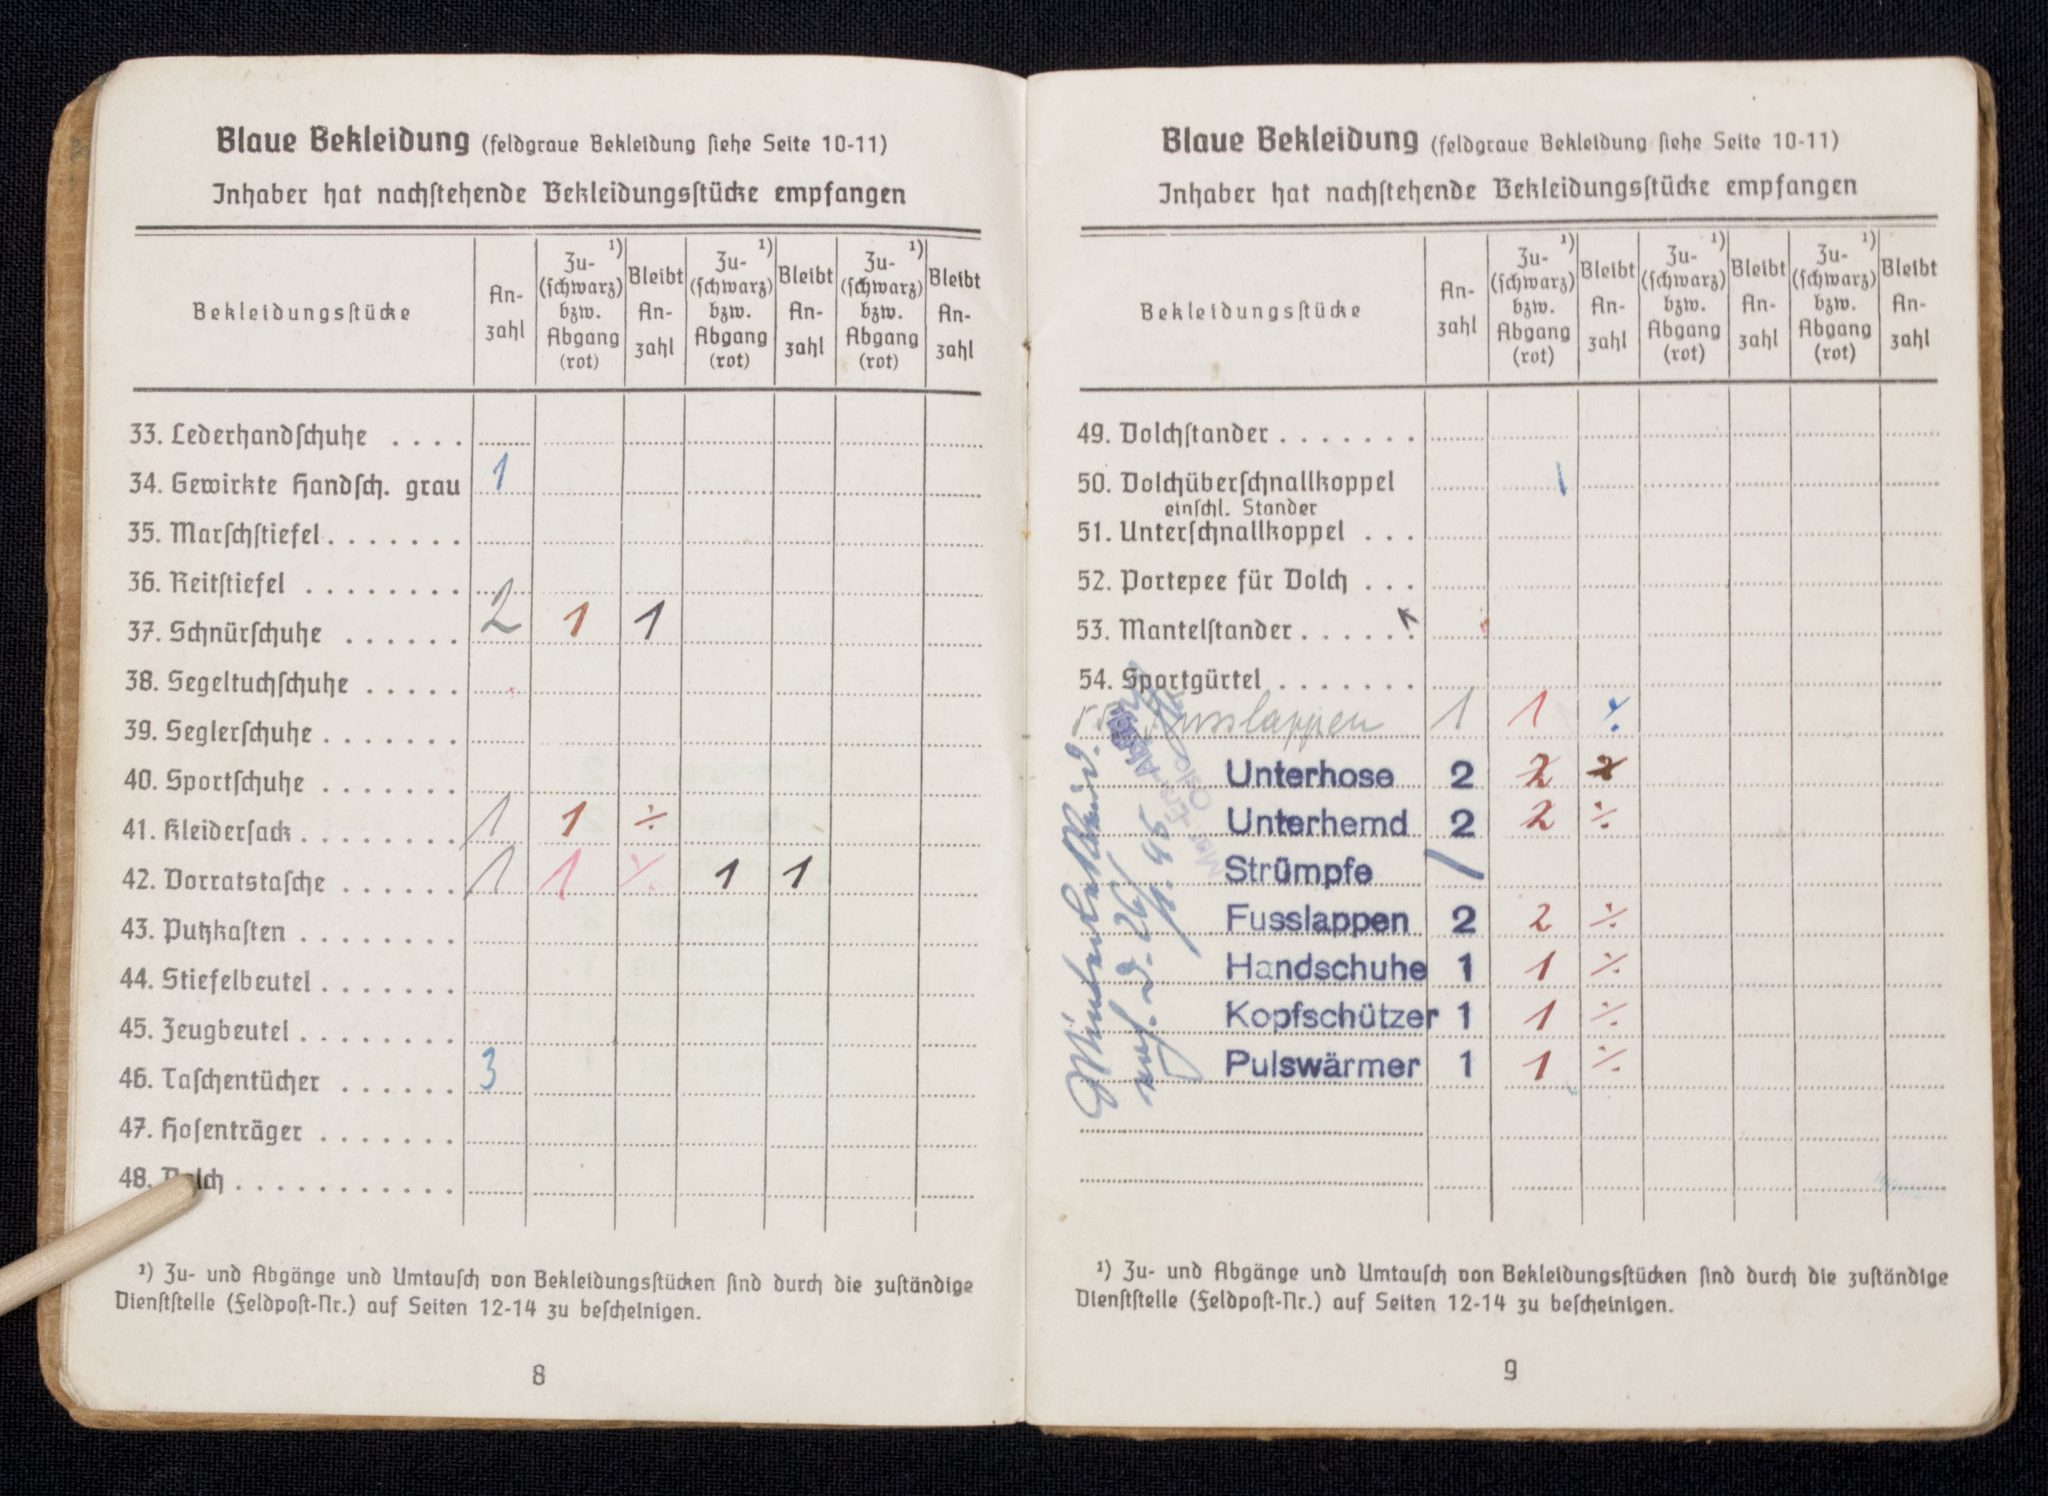 Blaue Bekleidung (feldgraue Bekleidung ſiehe Seite 10-11)
Inhaber hat nachſtehende Bekleidungsſtücke empfangen
Bekleidungsſtücke An-zahl Zu- ¹) (ſchwarz) bzw. Abgang (rot) Bleibt An-zahl Zu- ¹) (ſchwarz) bzw. Abgang (rot) Bleibt An-zahl Zu- ¹) (ſchwarz) bzw. Abgang (rot) Bleibt An-zahl
33. Lederhandſchuhe . . . .
34. Gewirkte Handſch. grau 1
35. Marſchſtiefel . . . . . . .
36. Reitſtiefel . . . . . . . .
37. Schnürſchuhe . . . . . . 2 1 1
38. Segeltuchſchuhe . . . . .
39. Seglerſchuhe . . . . . . .
40. Sportſchuhe . . . . . . .
41. Kleiderſack . . . . . . . . 1 1 ÷
42. Vorratstaſche . . . . . . 1 1 ÷ 1 1
43. Putzkaſten . . . . . . . .
44. Stiefelbeutel . . . . . . .
45. Zeugbeutel . . . . . . . .
46. Taſchentücher . . . . . . 3
47. Hoſenträger . . . . . . .
48. Dolch . . . . . . . . . . .
¹) Zu- und Abgänge und Umtauſch von Bekleidungsſtücken ſind durch die zuſtändige
Dienſtſtelle (Feldpoſt-Nr.) auf Seiten 12-14 zu beſcheinigen.
8
Blaue Bekleidung (feldgraue Bekleidung ſiehe Seite 10-11)
Inhaber hat nachſtehende Bekleidungsſtücke empfangen
Bekleidungsſtücke An-zahl Zu- ¹) (ſchwarz) bzw. Abgang (rot) Bleibt An-zahl Zu- ¹) (ſchwarz) bzw. Abgang (rot) Bleibt An-zahl Zu- ¹) (ſchwarz) bzw. Abgang (rot) Bleibt An-zahl
49. Dolchſtander . . . . . . .
50. Dolchüberſchnallkoppel 1
einſchl. Stander
51. Unterſchnallkoppel . . .
52. Portepee für Dolch . . .
53. Mantelſtander . . . . . .
54. Sportgürtel . . . . . . .
Fusslappen 1 1 ÷
Unterhose 2 2
Unterhemd 2 2 ÷
Strümpfe /
Fusslappen 2 2 ÷
Handschuhe 1 1 ÷
Kopfschützer 1 1 ÷
Pulswärmer 1 1 ÷
¹) Zu- und Abgänge und Umtauſch von Bekleidungsſtücken ſind durch die zuſtändige
Dienſtſtelle (Feldpoſt-Nr.) auf Seiten 12-14 zu beſcheinigen.
9